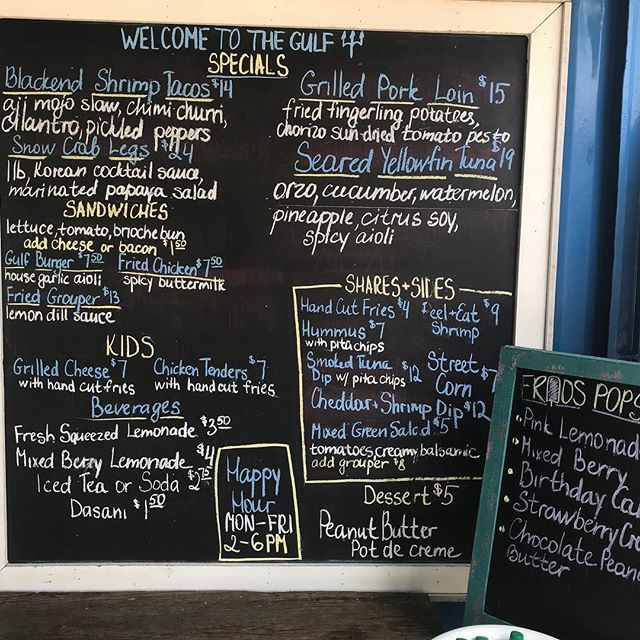 WELCOME TO THE GULF
SPECIALS
Blackend Shrimp Tacos $14
aji mojo slaw, chimi churri,
cilantro, pickled peppers
Snow Crab Legs $24
1lb, Korean cocktail sauce,
marinated papaya salad
Grilled Pork Loin $15
fried fingerling potatoes,
chorizo sun-dried tomato pesto
Seared Yellowfin Tuna $19
orzo, cucumber, watermelon,
pineapple, citrus soy,
spicy aioli
SANDWICHES
lettuce, tomato, brioche bun
add cheese or bacon $1.50
Gulf Burger $7.50
house garlic aioli
Fried Chicken $7.50
spicy buttermilk
Fried Grouper $13
lemon dill sauce
KIDS
Grilled Cheese $7
with hand cut fries
Chicken Tenders $7
with hand cut fries
Beverages
Fresh Squeezed Lemonade $3.50
Mixed Berry Lemonade $4
Iced Tea or Soda
Dasani $1.50
Happy
Hour
MON-FRI
2-6PM
SHARES + SIDES
Hand Cut Fries $4
Hummus $7
with pita chips
Smoked Tuna $12
Dip w/ pita chips
Peel + Eat $9
Shrimp
Street $7
Corn
Cheddar + Shrimp Dip $12
Mixed Green Salad $5
tomatoes, creamy balsamic
add grouper $8
Dessert $5
Peanut Butter
Pot de creme
POPS
Pink Lemonad
Mixed Berry
Birthday Ca
Strawberry Cr
Chocolate Peanu
Butter